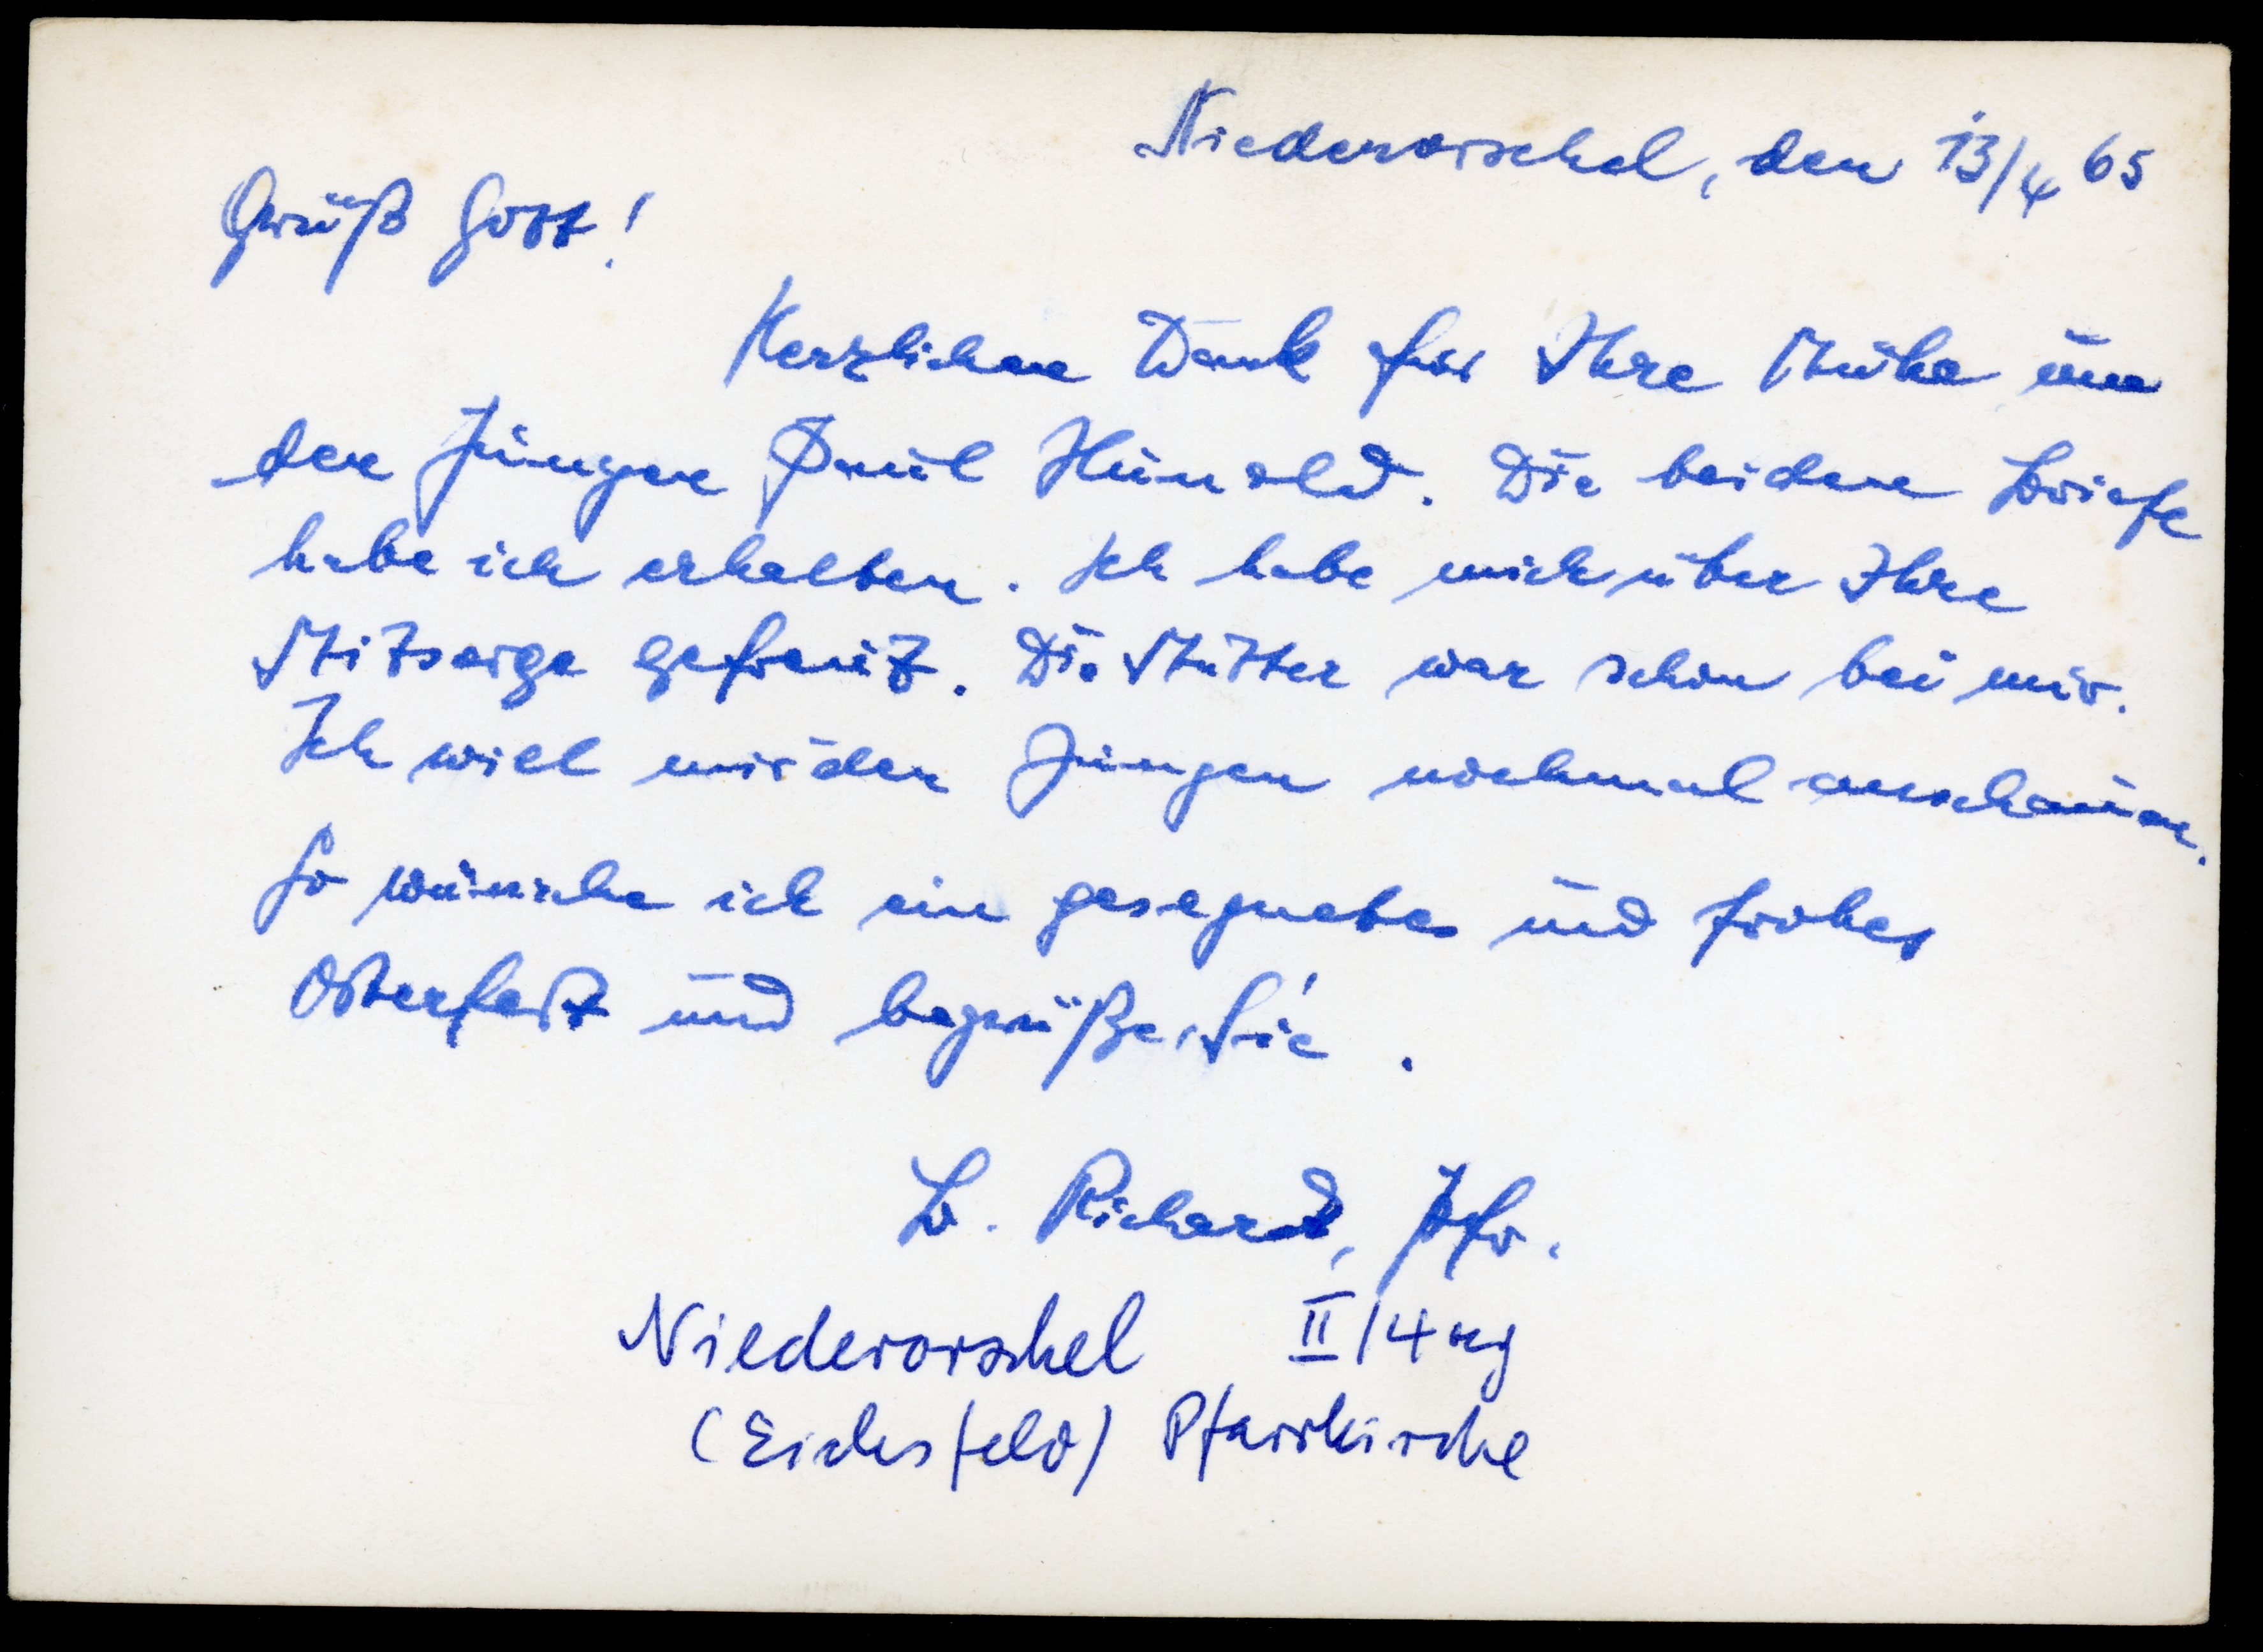 Niederorschel, den 13/4 65
Grüß Gott!
Herzlichen Dank für Ihre Mühe um
den Jungen Paul Hunold. Die beiden Briefe
habe ich erhalten. Ich habe mich über Ihre
Mitsorge gefreut. Die Mutter war schon bei mir.
Ich will mir den Jungen nochmal anschauen.
So wünsche ich ein gesegnetes und frohes
Osterfest und begrüße Sie.
B. Richard, Pfr.
Niederorschel II/4
(Eichsfeld) Pfarrkirche